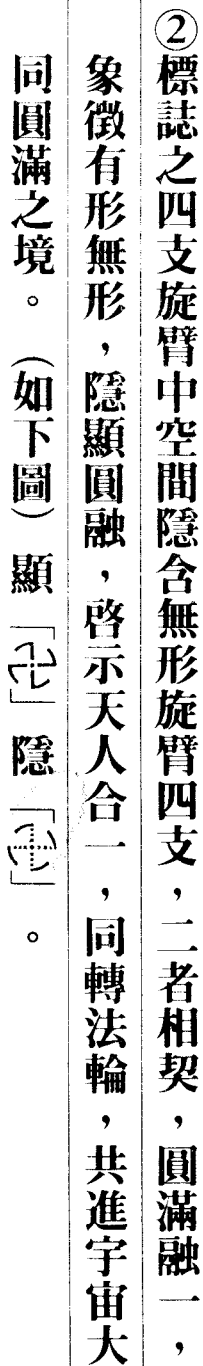 ②標誌之四支旋臂中空間隱含無形旋臂四支，二者相契，圓滿融一，
象徵有形無形，隱顯圓融，啓示天人合一，同轉法輪，共進宇宙大
同圓滿之境。（如下圖）顯「卍」隱「」。